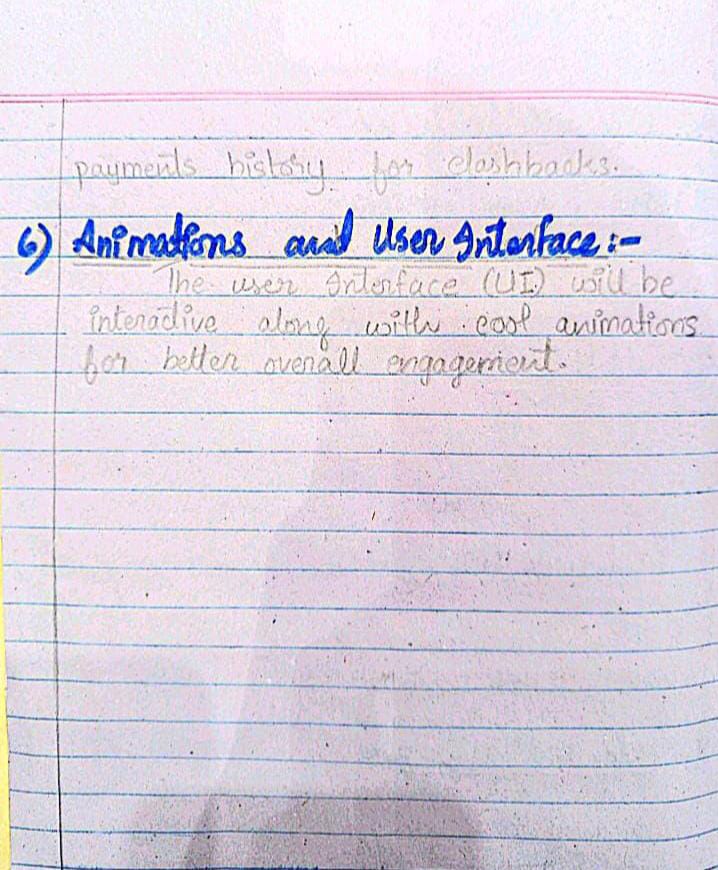 payments history for clashbacks.
6) Animations and User Interface :-
The user Interface (UI) will be
interactive along with cool animations
for better overall engagement.